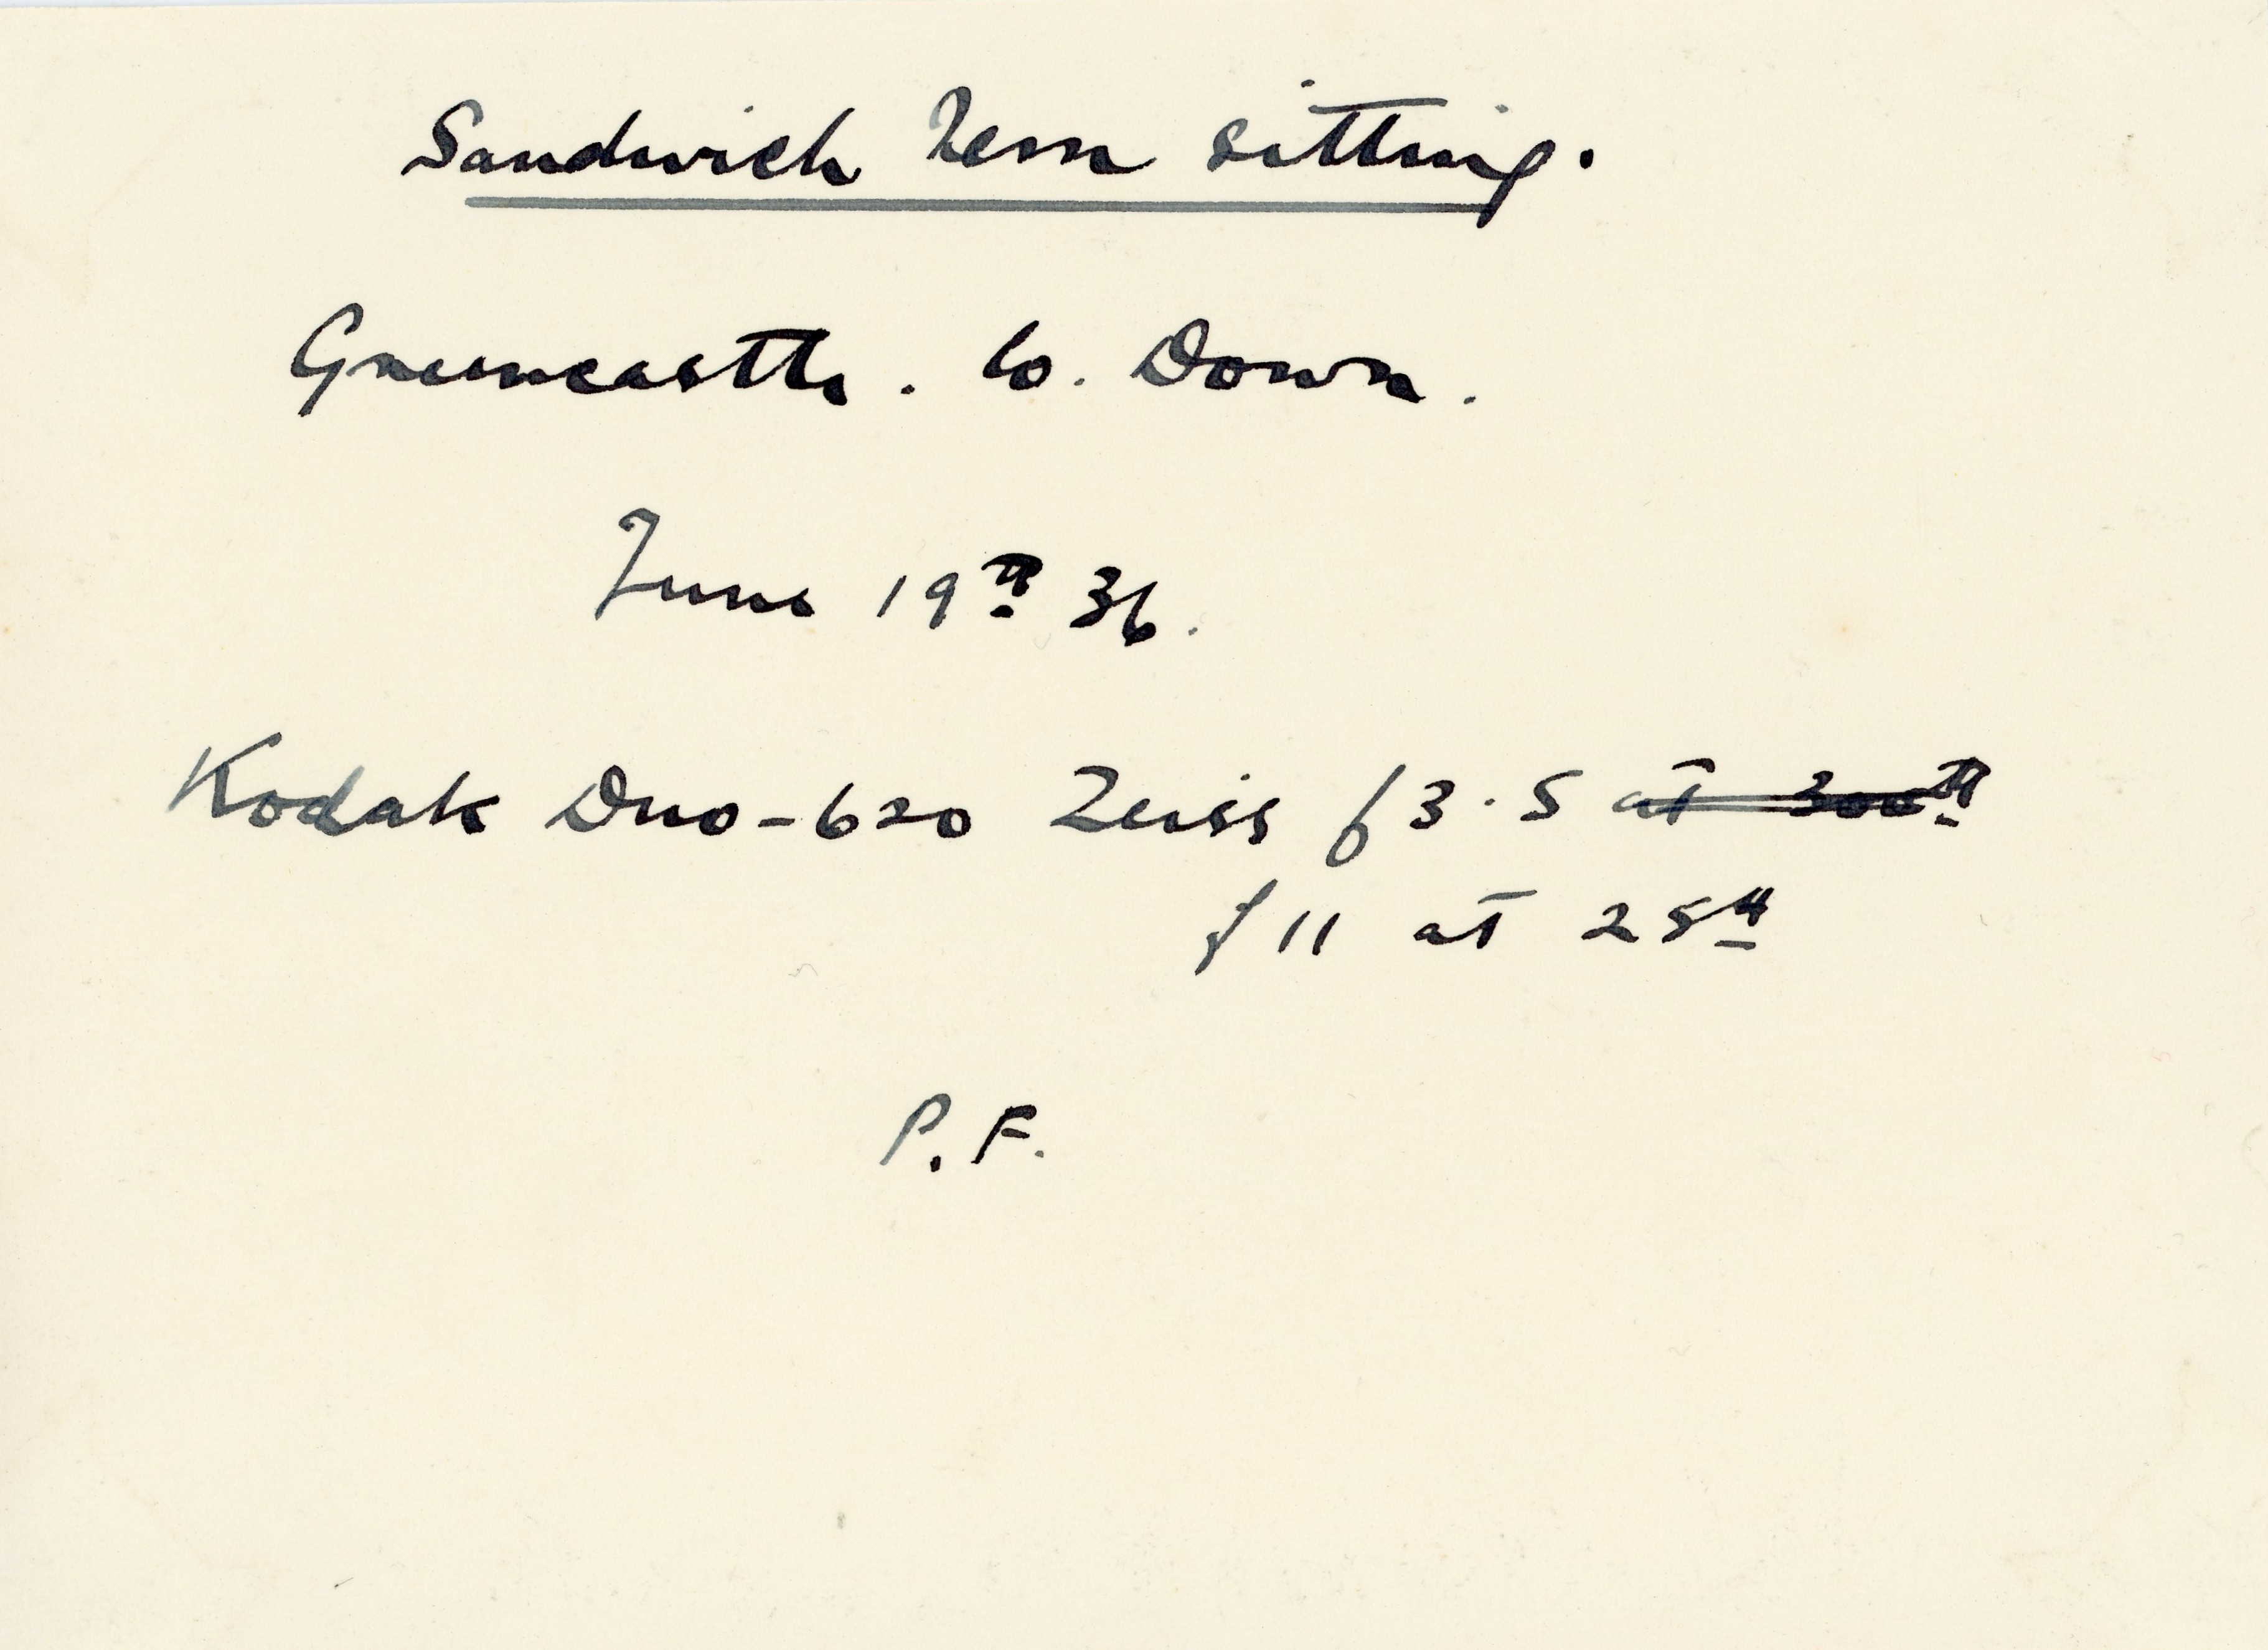 Sandwich Tern sitting.
Greencastle. Co. Down.
June 19th 36.
Kodak Duo-620 Zeiss f3.5 at 300th
f11 at 25th
P. F.